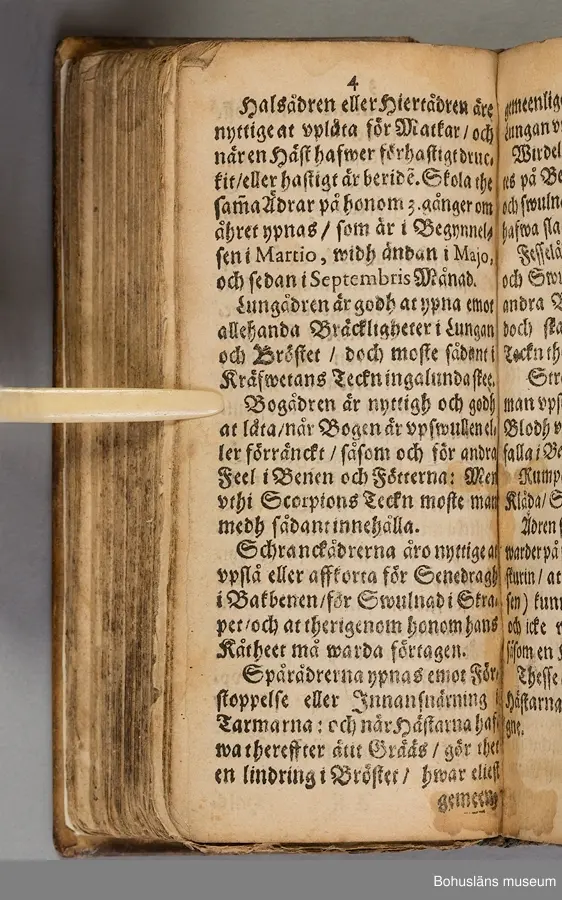 4
Halsådren eller Hiertådren äre
nyttige at vplåta för Matkar / och
när en Häst hafwer förhastigt druc-
kit / eller hastigt är beridē. Skola the
sam̄a Ädrar på honom 3. gånger om
åhret ypnas / som är i Begynnel-
sen i Martio, widh ändan i Majo,
och sedan i Septembris Månad.
Lungådren är godh at ypna emot
allehanda Bräckligheter i Lungan
och Bröstet / doch moste sådant i
Kräfwetans Teckn ingalunda skee.
Bogådren är nyttigh och godh
at låta / når Bogen är vpswullen el-
ler förränckt / såsom och för andra
Feel i Benen och Fötterna: Men
vthi Scorpions Teckn moste man
medh sådant innehålla.
Schranckådrerna äro nyttige at
vpslå eller affkorta för Senedragh
i Bakbenen / för Swulnad i Skra-
pet / och at therigenom honom hans
Kåtheet må warda förtagen.
Spårådrerna ypnas emot För-
stoppelse eller Innansnärning i
Tarmarna: och når Hästarna haf-
wa thereffter ätit Grääs / gör thet
en lindring i Bröstet / hwar eliest
gemeen-
gemeenlig
Lungan
Wirdel
på Be
och swuln
hafwa sla
Fesselå
och Sw
andra B
doch ska
Teckn th
Str
man vps
Blodh
falla i Be
Rump
Klåda / S
Ådren
warder på
sturin / at
sen) kunn
och icke
såsom en
Thesse
Hästarna
gne.
Bohusläns museum